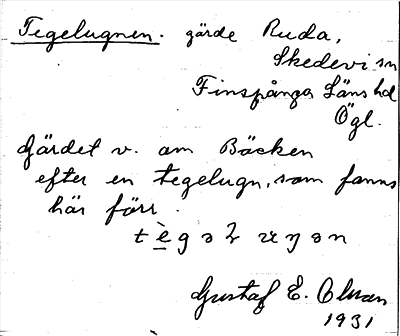 Tegelugnen. gärde Ruda,
Skedevi sn
Finspånga Läns hd
Ögl.
Gärdet v. om Bäcken
efter en tegelugn, som fanns
här förr.
Gustaf E.
1931